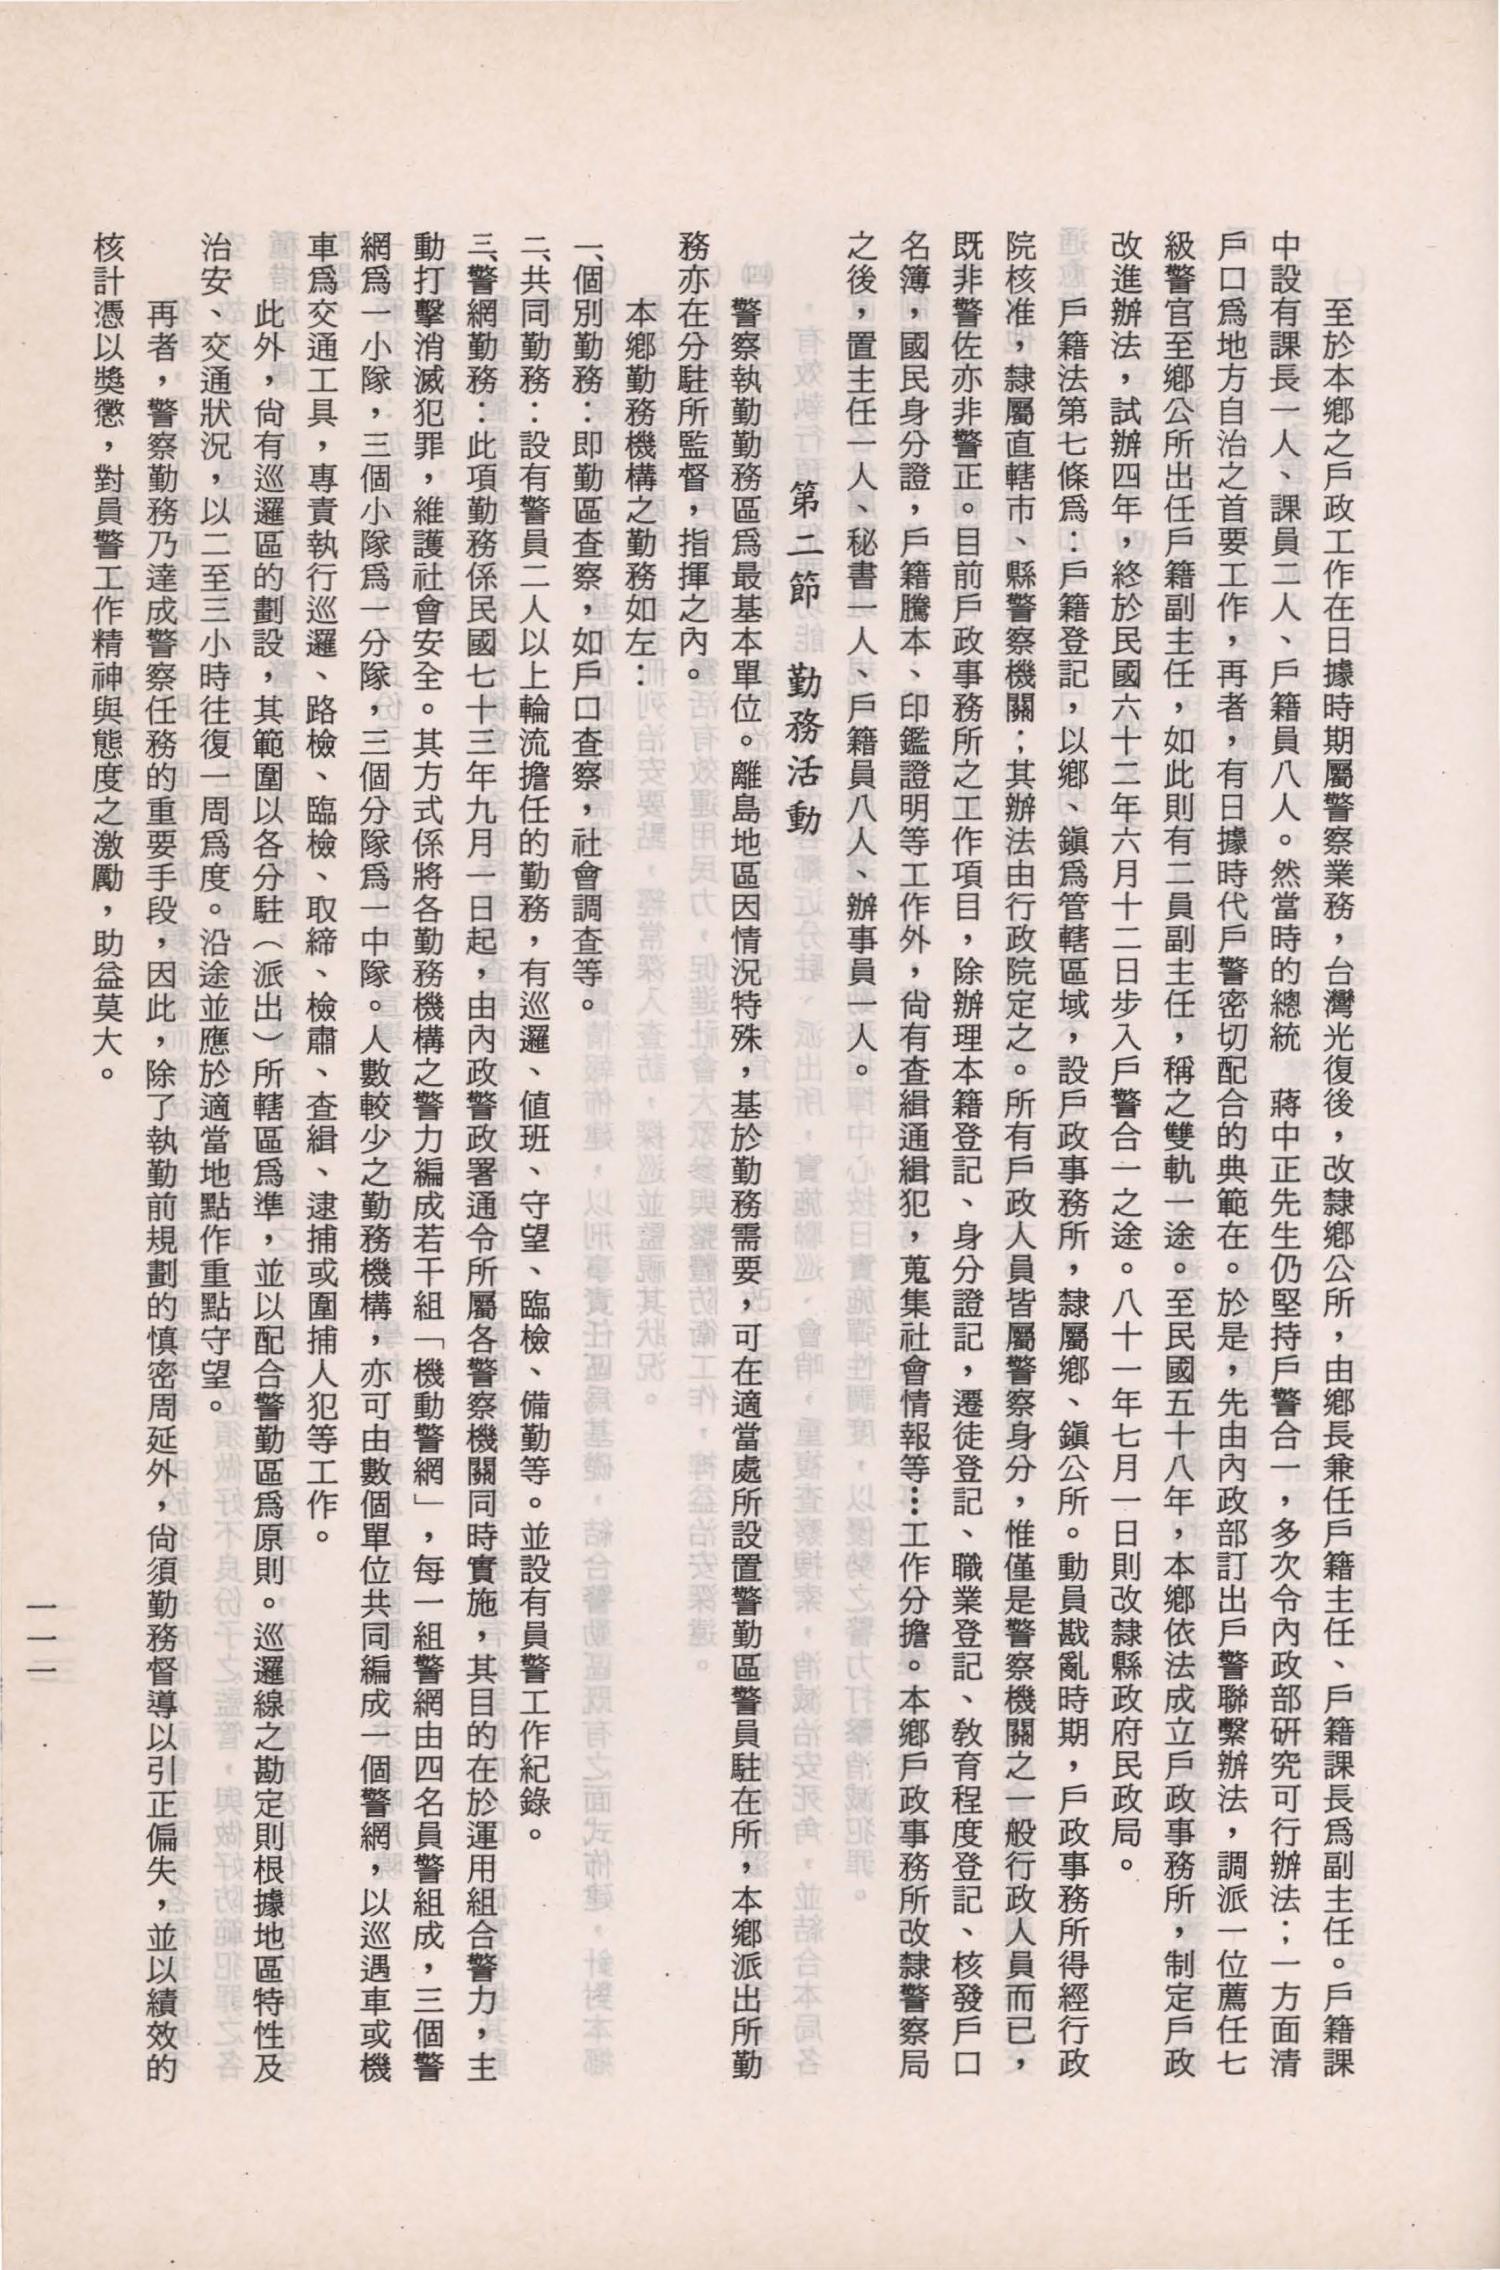 至於本鄉之戶政工作在日據時期屬警察業務，台灣光復後，改隸鄉公所，由鄉長兼任戶籍主任、戶籍課長爲副主任。戶籍課
中設有課長一人、課員二人、戶籍員八人。然當時的總統　蔣中正先生仍堅持戶警合一，多次令內政部研究可行辦法；一方面清
戶口爲地方自治之首要工作，再者，有日據時代戶警密切配合的典範在。於是，先由內政部訂出戶警聯繫辦法，調派一位薦任七
級警官至鄉公所出任戶籍副主任，如此則有二員副主任，稱之雙軌一途。至民國五十八年，本鄉依法成立戶政事務所，制定戶政
改進辦法，試辦四年，終於民國六十二年六月十二日步入戶警合一之途。八十一年七月一日則改隸縣政府民政局。
戶籍法第七條爲：戶籍登記，以鄉、鎭爲管轄區域，設戶政事務所，隸屬鄉、鎭公所。動員戡亂時期，戶政事務所得經行政
院核准，隸屬直轄市、縣警察機關；其辦法由行政院定之。所有戶政人員皆屬警察身分，惟僅是警察機關之一般行政人員而已，
既非警佐亦非警正。目前戶政事務所之工作項目，除辦理本籍登記、身分證記，遷徒登記、職業登記、敎育程度登記、核發戶口
名簿，國民身分證，戶籍騰本、印鑑證明等工作外，尙有查緝通緝犯，蒐集社會情報等…工作分擔。本鄉戶政事務所改隸警察局
之後，置主任一人、秘書一人、戶籍員八人、辦事員一人。
第二節　勤務活動
警察執勤勤務區爲最基本單位。離島地區因情況特殊，基於勤務需要，可在適當處所設置警勤區警員駐在所，本鄉派出所勤
務亦在分駐所監督，指揮之內。
本鄉勤務機構之勤務如左：
一、個別勤務：即勤區查察，如戶口查察，社會調查等。
二、共同勤務：設有警員二人以上輪流擔任的勤務，有巡邏、値班、守望、臨檢、備勤等。並設有員警工作紀錄。
三、警網勤務：此項勤務係民國七十三年九月一日起，由內政警政署通令所屬各警察機關同時實施，其目的在於運用組合警力，主
動打擊消滅犯罪，維護社會安全。其方式係將各勤務機構之警力編成若干組「機動警網」，每一組警網由四名員警組成，三個警
網爲一小隊，三個小隊爲一分隊，三個分隊爲一中隊。人數較少之勤務機構，亦可由數個單位共同編成一個警網，以巡邏車或機
車爲交通工具，專責執行巡邏、路檢、臨檢、取締、檢肅、查緝、逮捕或圍捕人犯等工作。
此外，尙有巡邏區的劃設，其範圍以各分駐（派出）所轄區爲準，並以配合警勤區爲原則。巡邏線之勘定則根據地區特性及
治安、交通狀況，以二至三小時往復一周爲度。沿途並應於適當地點作重點守望。
再者，警察勤務乃達成警察任務的重要手段，因此，除了執勤前規劃的慎密周延外，尙須勤務督導以引正偏失，並以績效的
核計憑以獎懲，對員警工作精神與態度之激勵，助益莫大。
一一一